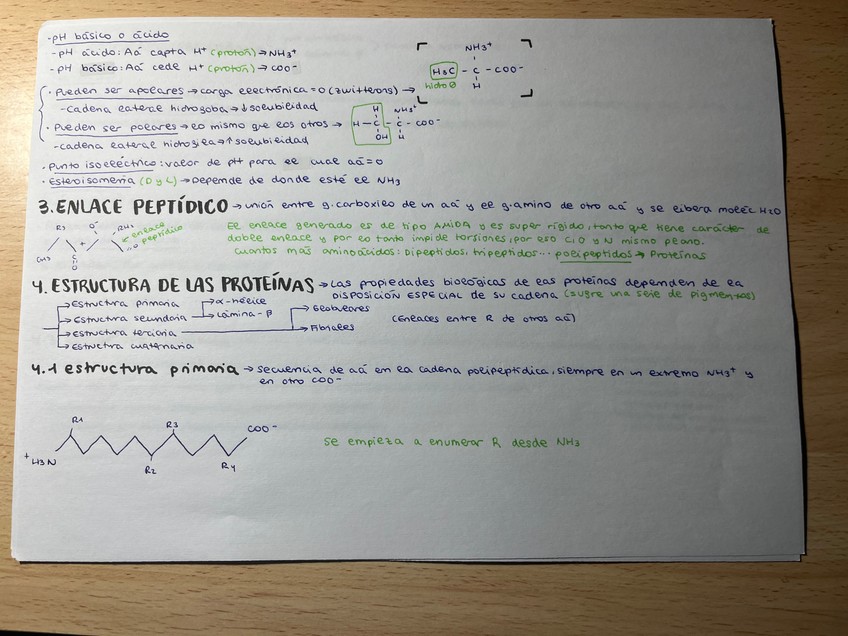 -pH básico o ácido
-pH ácido: Aá capta H⁺ (protón) → NH3⁺
-pH básico: Aá cede H⁺ (protón) → COO⁻
NH3⁺
H3C - C - COO⁻
H
hidroΦ
· Pueden ser apolares → carga electrónica = 0 (zwitterons) →
-Cadena lateral hidrófoba → ↓ solubilidad
· Pueden ser polares → lo mismo que los otros →
-cadena lateral hidrofila → ↑ solubilidad
H NH3⁺
H - C - C - COO⁻
OH H
· Punto isoeléctrico: valor de pH para el cual aá = 0
· Esteroisomería (D y L) → Depende de donde esté el NH3
3. ENLACE PEPTÍDICO → unión entre g. carboxilo de un aá y el g. amino de otro aá y se libera moléc H2O
enlace
peptídico
C
O
El enlace generado es de tipo AMIDA y es super rígido, tanto que tiene carácter de
doble enlace y por lo tanto impide torsiones, por eso C, O y N mismo plano.
Cuantos más aminoácidos: Dipeptidos, tripeptidos... polipeptidos → Proteínas
4. ESTRUCTURA DE LAS PROTEÍNAS → Las propiedades biológicas de las proteínas dependen de la
DISPOSICIÓN ESPECIAL de su cadena (sufre una serie de pigmentos)
→ Estructura primaria
→ Estructura secundaria → α-hélice
→ Lámina-β
→ Estructura terciaria → Globulares
→ Fibrilales
(Enlaces entre R de otros aá)
→ Estructura cuaternaria
4.1 estructura primaria → secuencia de aá en la cadena polipeptídica, siempre en un extremo NH3⁺ y
en otro COO⁻
R1 R3 COO⁻
⁺H3N R2 R4
Se empieza a enumerar R desde NH3